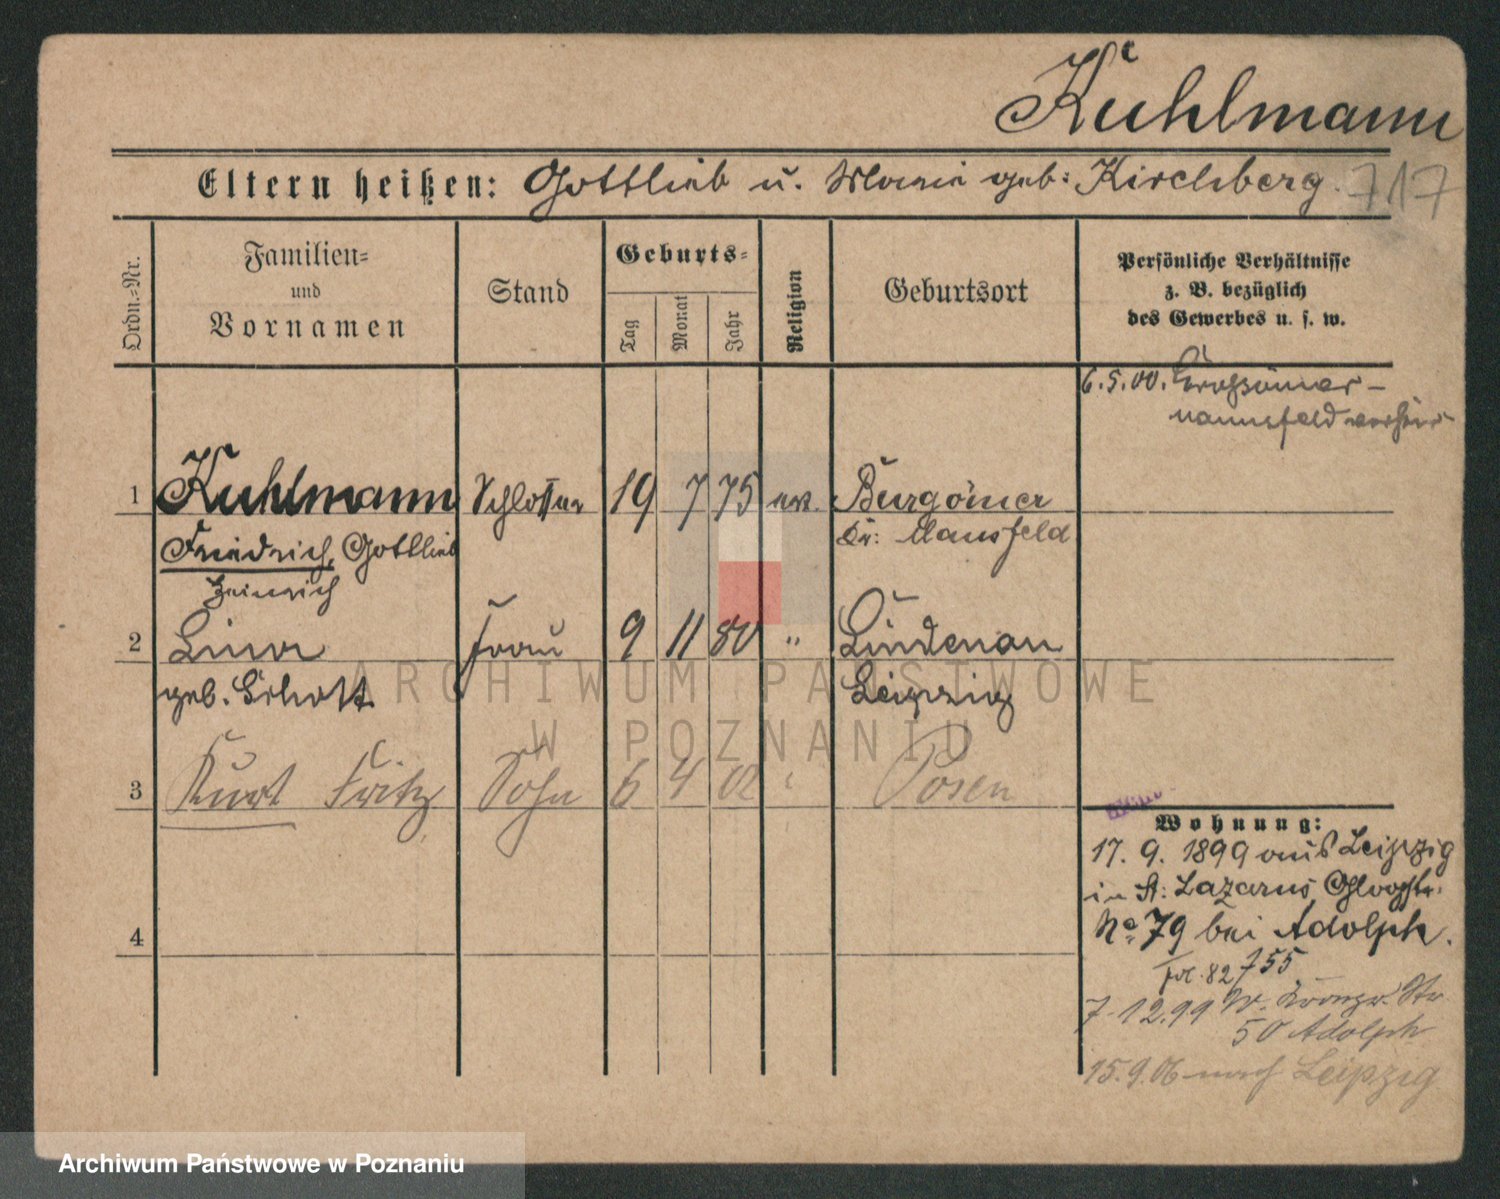 Kuhlmann
Eltern heißen: Gottlieb u. Marie geb: Kirchberg.
717
Ordn.-Nr.
Familien-
und
Vornamen
Stand
Geburts-
Tag
Monat
Jahr
Religion
Geburtsort
Persönliche Verhältnisse
z. B. bezüglich
des Gewerbes u. s. w.
6.5.00. Grossörner-
mannsfeld
1 Kuhlmann Schlosser 19 7 75 ev. Burgörner
Friedrich, Gottlieb Kr: Mansfeld
Heinrich
2 Lina Frau 9 11 80 " Lindenau
geb. Leipzig
3 Kurt Fritz Sohn 6 4 02 " Posen
Wohnung:
17. 9. 1899 aus Leipzig
in St: Lazarus, Glogstr.
No 79 bei Adolph.
fol. 82/755
7.12.99 W. Kronpr. Str
50 Adolph
15.9.06 nach Leipzig
4
ARCHIWUM PAŃSTWOWE
W POZNANIU
Archiwum Państwowe w Poznaniu